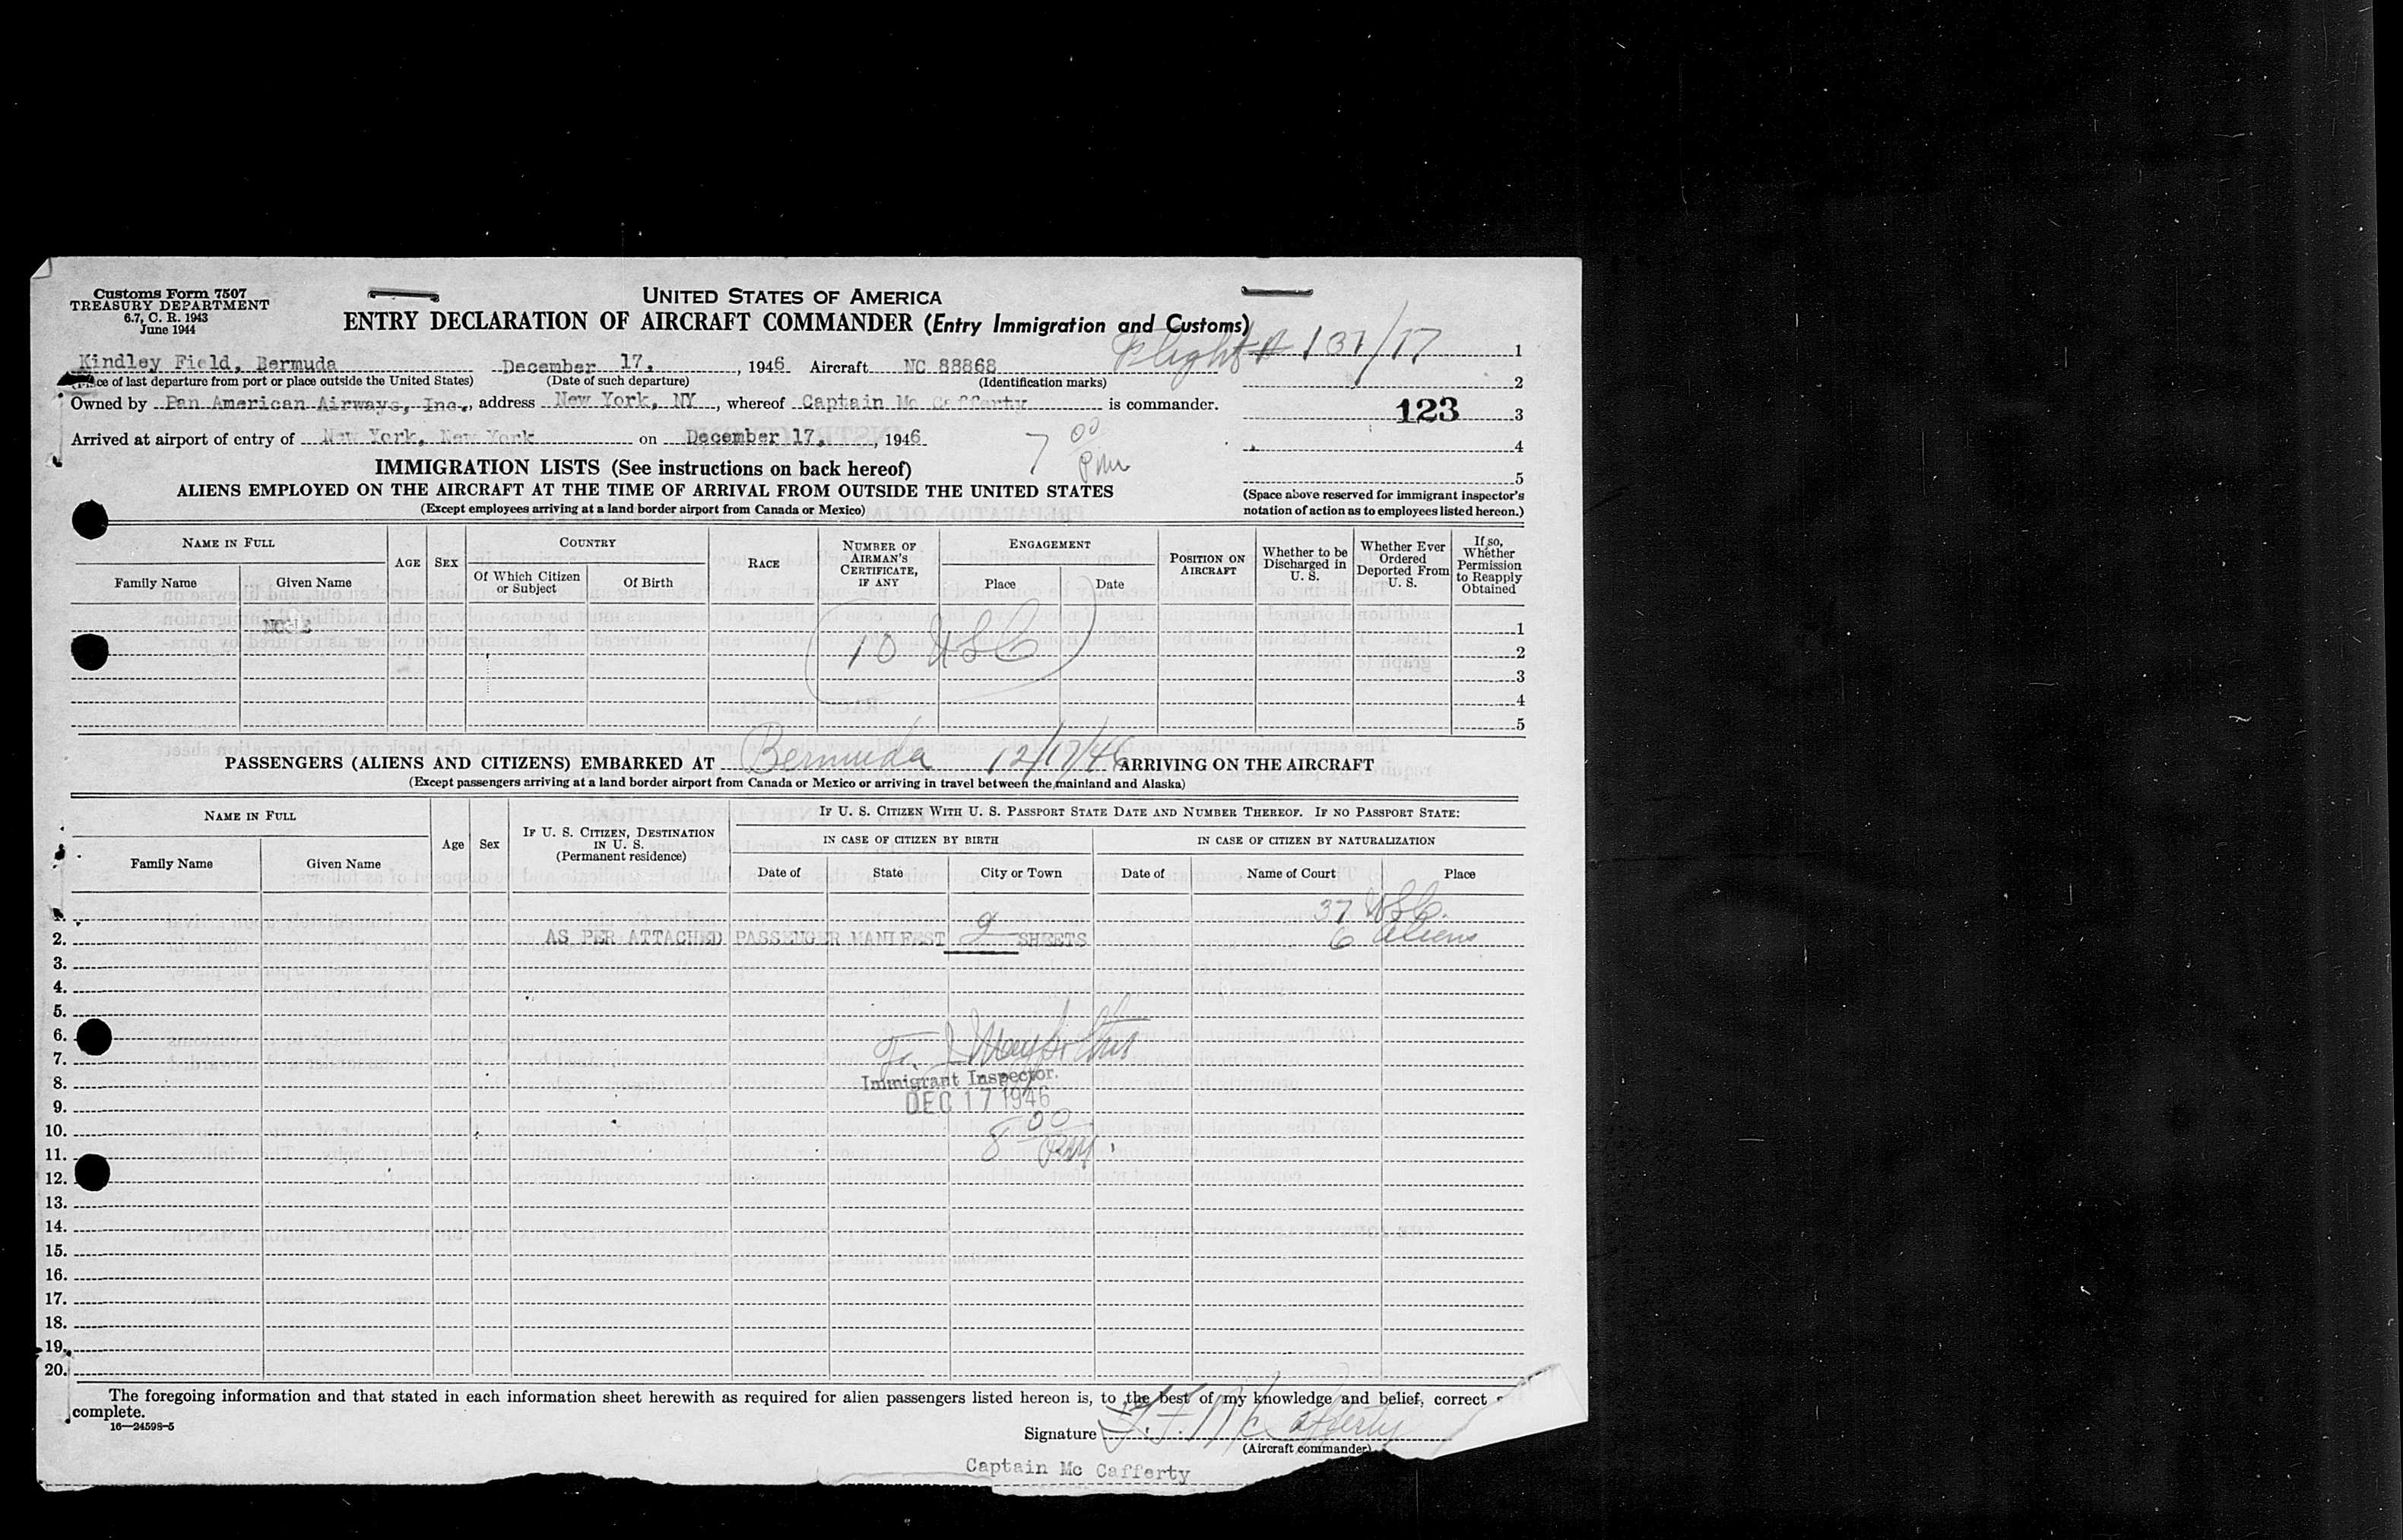 Customs Form 7507
TREASURY DEPARTMENT
6.7, C. R. 1943
June 1944
UNITED STATES OF AMERICA
ENTRY DECLARATION OF AIRCRAFT COMMANDER (Entry Immigration and Customs)
Flight # 131/17 1
Kindley Field, Bermuda December 17, , 1946 Aircraft NC 88868
(Place of last departure from port or place outside the United States) (Date of such departure) (Identification marks) 2
Owned by Pan American Airways, Inc., address New York, NY, whereof Captain Mc Cafferty is commander.
123 3
Arrived at airport of entry of New York, New York on December 17, , 1946
7 00 PM 4
5
IMMIGRATION LISTS (See instructions on back hereof)
ALIENS EMPLOYED ON THE AIRCRAFT AT THE TIME OF ARRIVAL FROM OUTSIDE THE UNITED STATES
(Except employees arriving at a land border airport from Canada or Mexico)
(Space above reserved for immigrant inspector's
notation of action as to employees listed hereon.)
NAME IN FULL
Family Name Given Name
AGE SEX
COUNTRY
Of Which Citizen or Subject Of Birth
RACE
NUMBER OF AIRMAN'S CERTIFICATE, IF ANY
ENGAGEMENT
Place Date
POSITION ON AIRCRAFT
Whether to be Discharged in U. S.
Whether Ever Ordered Deported From U. S.
If so, Whether Permission to Reapply Obtained
1
10 USC 2
3
4
5
PASSENGERS (ALIENS AND CITIZENS) EMBARKED AT Bermuda 12/17/46 ARRIVING ON THE AIRCRAFT
(Except passengers arriving at a land border airport from Canada or Mexico or arriving in travel between the mainland and Alaska)
NAME IN FULL
Family Name Given Name
Age Sex
IF U. S. CITIZEN, DESTINATION IN U. S.
(Permanent residence)
IF U. S. CITIZEN WITH U. S. PASSPORT STATE DATE AND NUMBER THEREOF. IF NO PASSPORT STATE:
IN CASE OF CITIZEN BY BIRTH
Date of State City or Town
IN CASE OF CITIZEN BY NATURALIZATION
Date of Name of Court Place
1. 37 USC.
2. AS PER ATTACHED PASSENGER MANIFEST 2 SHEETS 6 Aliens
3.
4.
5.
6.
7.
8. Immigrant Inspector.
9. DEC 17 1946
10. 8 00
11. PM
12.
13.
14.
15.
16.
17.
18.
19.
20.
The foregoing information and that stated in each information sheet herewith as required for alien passengers listed hereon is, to the best of my knowledge and belief, correct
complete.
16—24598-5
Signature McCafferty
(Aircraft commander)
Captain Mc Cafferty